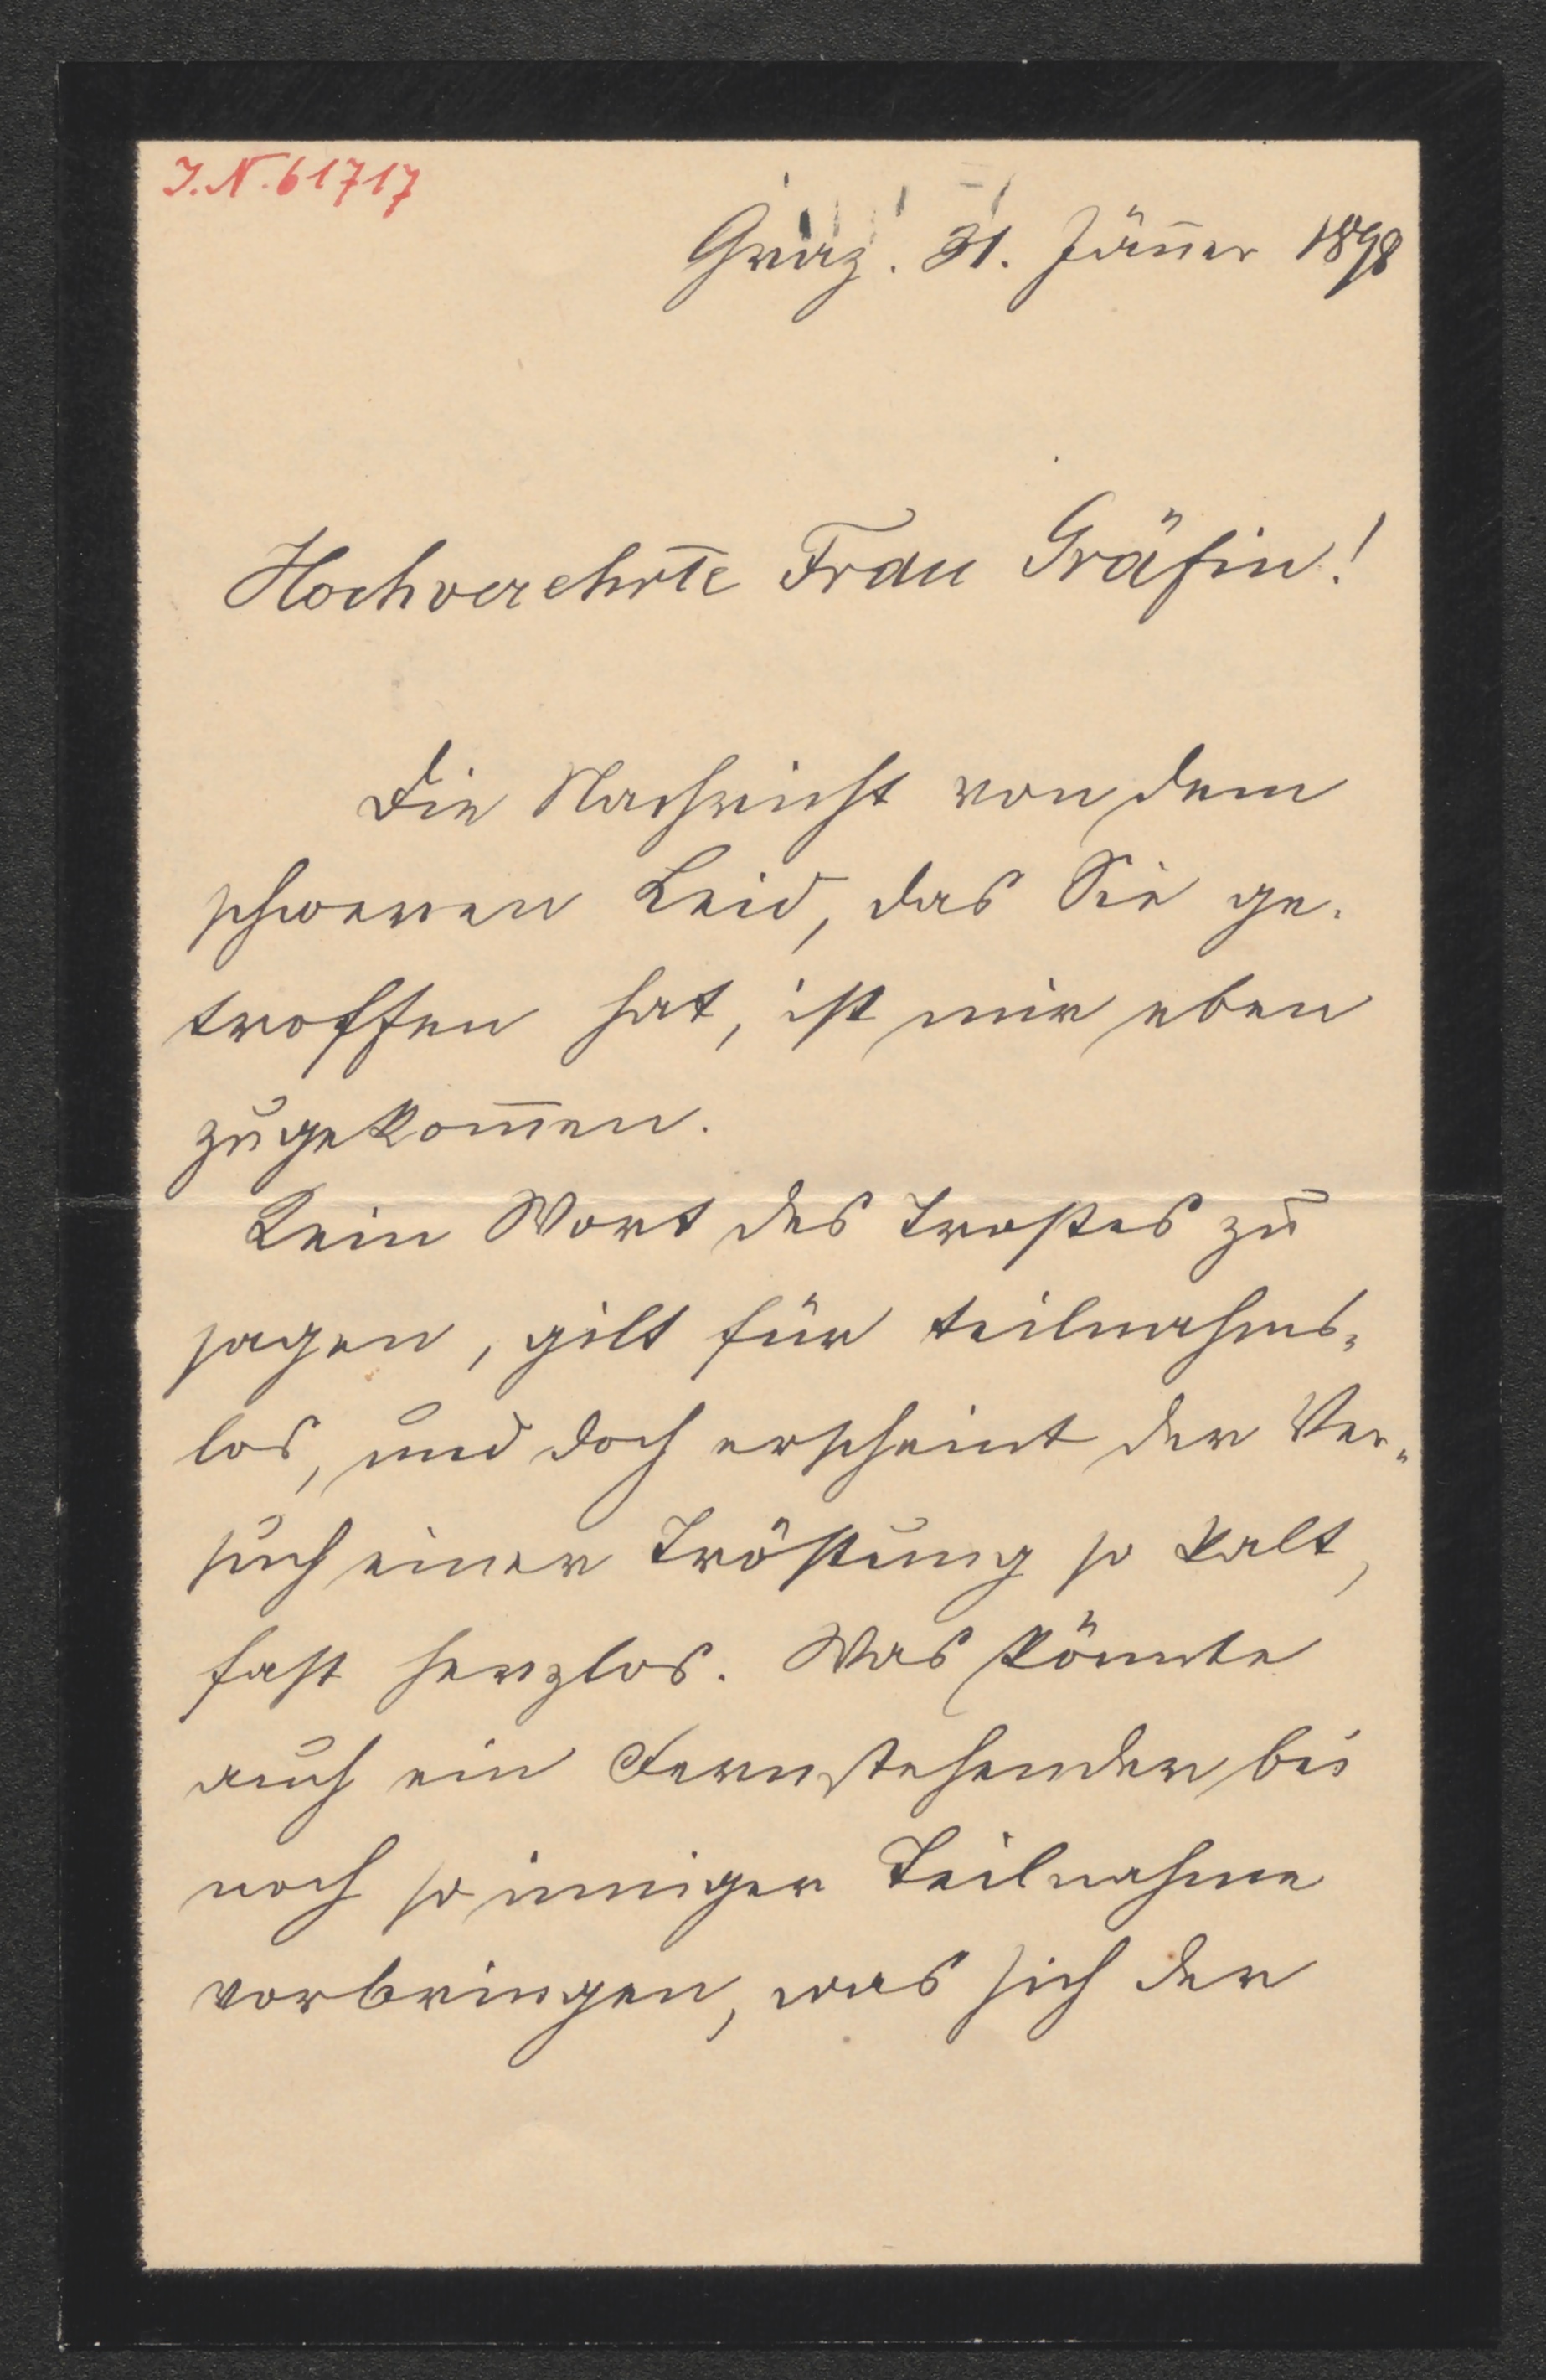 I. N. 61717
Graz. 31. Jän̄er 1898
Hochverehrte Frau Gräfin!
Die Nachricht von dem
schweren Leid, das Sie ge-
troffen hat, ist mir eben
zugekom̄en.
Kein Wort des Trostes zu
sagen, gilt für teilnahms-
los, und doch erscheint der Ver-
such einer Tröstung so kalt,
fast herzlos. Was könnte
auch ein Fernstehender bei
noch so inniger Teilnahme
vorbringen, was sich der